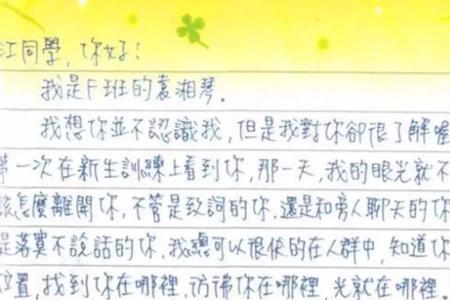 江同學,你好!
我是F班的袁湘琴。
我想你並不認識我,但是我對你卻很了解喔
第一次在新生訓練上看到你,那一天,我的眼光就不
該怎麼離開你,不管是致詞的你,還是和旁人聊天的你
是落寞不說話的你,我總可以很快的在人群中,知道你
位置,找到你在哪裡,彷彿你在哪裡,光就在哪裡。